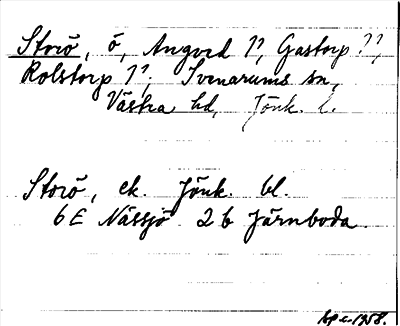 Storö, ö, Angved 1⁷, Gastorp ?⁷,
Rolstorp 1⁷, Svenarums sn,
Västra hd, Jönk. l.
Storö, ek. Jönk. bl.
6 E Nässjö 2 b Järnboda
1958.